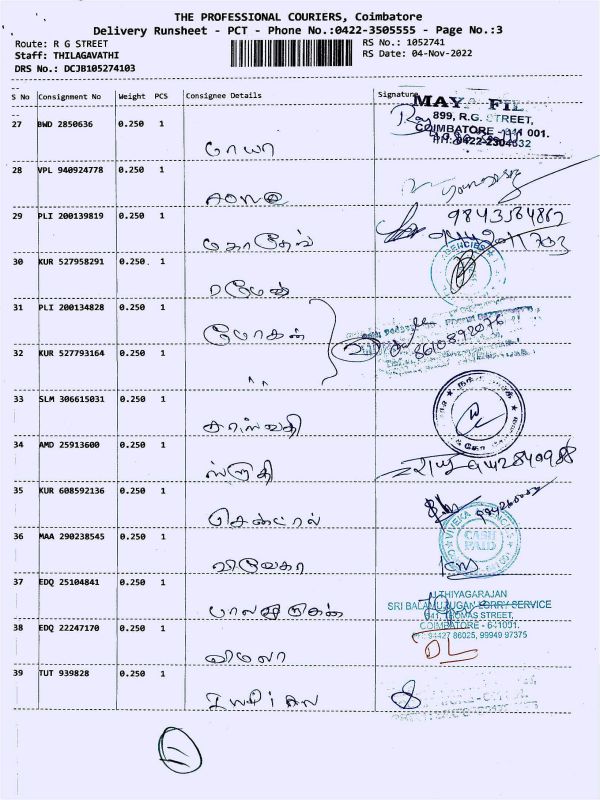 THE PROFESSIONAL COURIERS, Coimbatore
Delivery Runsheet - PCT - Phone No.:0422-3505555 - Page No.:3
Route: R G STREET
RS No.: 1052741
Staff: THILAGAVATHI
RS Date: 04-Nov-2022
DRS No.: DCJB105274103
S No Consignment No Weight PCS Consignee Details Signature
MAYA FIL
27 BWD 2850636 0.250 1
899, R.G. STREET,
COIMBATORE - 641 001.
PH: 0422-2304832
மாயா
28 VPL 940924778 0.250 1
29 PLI 200139819 0.250 1
30 KUR 527958291 0.250 1
AGENCIES
ரமேஷ்
31 PLI 200134828 0.250 1
மோகன்
8610892076
32 KUR 527793164 0.250 1
33 SLM 306615031 0.250 1
சரஸ்வதி
34 AMD 25913600 0.250 1
ஸ்ருதி
35 KUR 608592136 0.250 1
சென்ட்ரல்
36 MAA 290238545 0.250 1
VIVEKA AGENCIES
CASH
PAID
விவேகா
37 EDQ 25104841 0.250 1
N.THIYAGARAJAN
SRI BALAMURUGAN LORRY SERVICE
பாலமுருகன்
641, THOMAS STREET,
COIMBATORE - 641001.
38 EDQ 22247170 0.250 1
94427 86025, 99949 97375
விமலா
39 TUT 939828 0.250 1